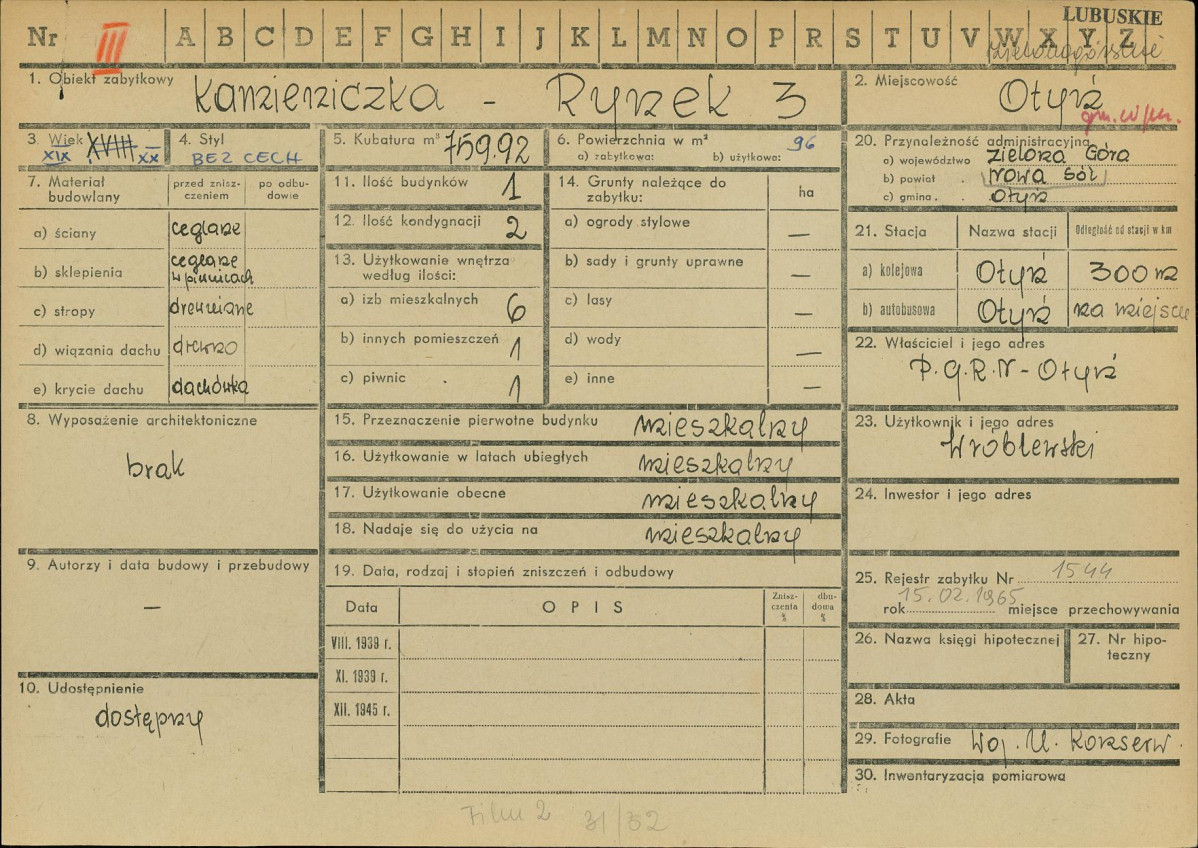 LUBUSKIE
Nr III A B C D E F G H I J K L M N O P R S T U V W X Y Z
zielonogórskie
1. Obiekt zabytkowy
Kamieniczka - Rynek 3
2. Miejscowość
Otyń
gm. w/m.
3. Wiek XVIII
XIX XX
4. Styl
BEZ CECH
5. Kubatura m³ 759.92
6. Powierzchnia w m² 96
a) zabytkowa: b) użytkowa:
7. Materiał budowlany
przed zniszczeniem
po odbudowie
a) ściany ceglane
b) sklepienia ceglane w piwnicach
c) stropy drewniane
d) wiązania dachu drewno
e) krycie dachu dachówka
8. Wyposażenie architektoniczne
brak
9. Autorzy i data budowy i przebudowy
—
10. Udostępnienie
dostępny
11. Ilość budynków 1
12. Ilość kondygnacji 2
13. Użytkowanie wnętrza
według ilości:
a) izb mieszkalnych 6
b) innych pomieszczeń 1
c) piwnic . 1
14. Grunty należące do
zabytku:
ha
a) ogrody stylowe —
b) sady i grunty uprawne —
c) lasy —
d) wody —
e) inne —
15. Przeznaczenie pierwotne budynku mieszkalny
16. Użytkowanie w latach ubiegłych mieszkalny
17. Użytkowanie obecne mieszkalny
18. Nadaje się do użycia na mieszkalny
19. Data, rodzaj i stopień zniszczeń i odbudowy
Data OPIS Znisz-
czenia
% dbu-
dowa
%
VIII. 1939 r.
XI. 1939 r.
XII. 1945 r.
20. Przynależność administracyjna
a) województwo Zielona Góra
b) powiat . Nowa Sól
c) gmina . Otyń
21. Stacja Nazwa stacji Odległość od stacji w km
a) kolejowa Otyń 300 m
b) autobusowa Otyń na miejscu
22. Właściciel i jego adres
P.G.R.N - Otyń
23. Użytkownik i jego adres
Wróblewski
24. Inwestor i jego adres
25. Rejestr zabytku Nr 1544
15.02.1965
rok miejsce przechowywania
26. Nazwa księgi hipotecznej
27. Nr hipo-
teczny
28. Akta
29. Fotografie Woj. U. Konserw.
30. Inwentaryzacja pomiarowa
Film 2 31/32